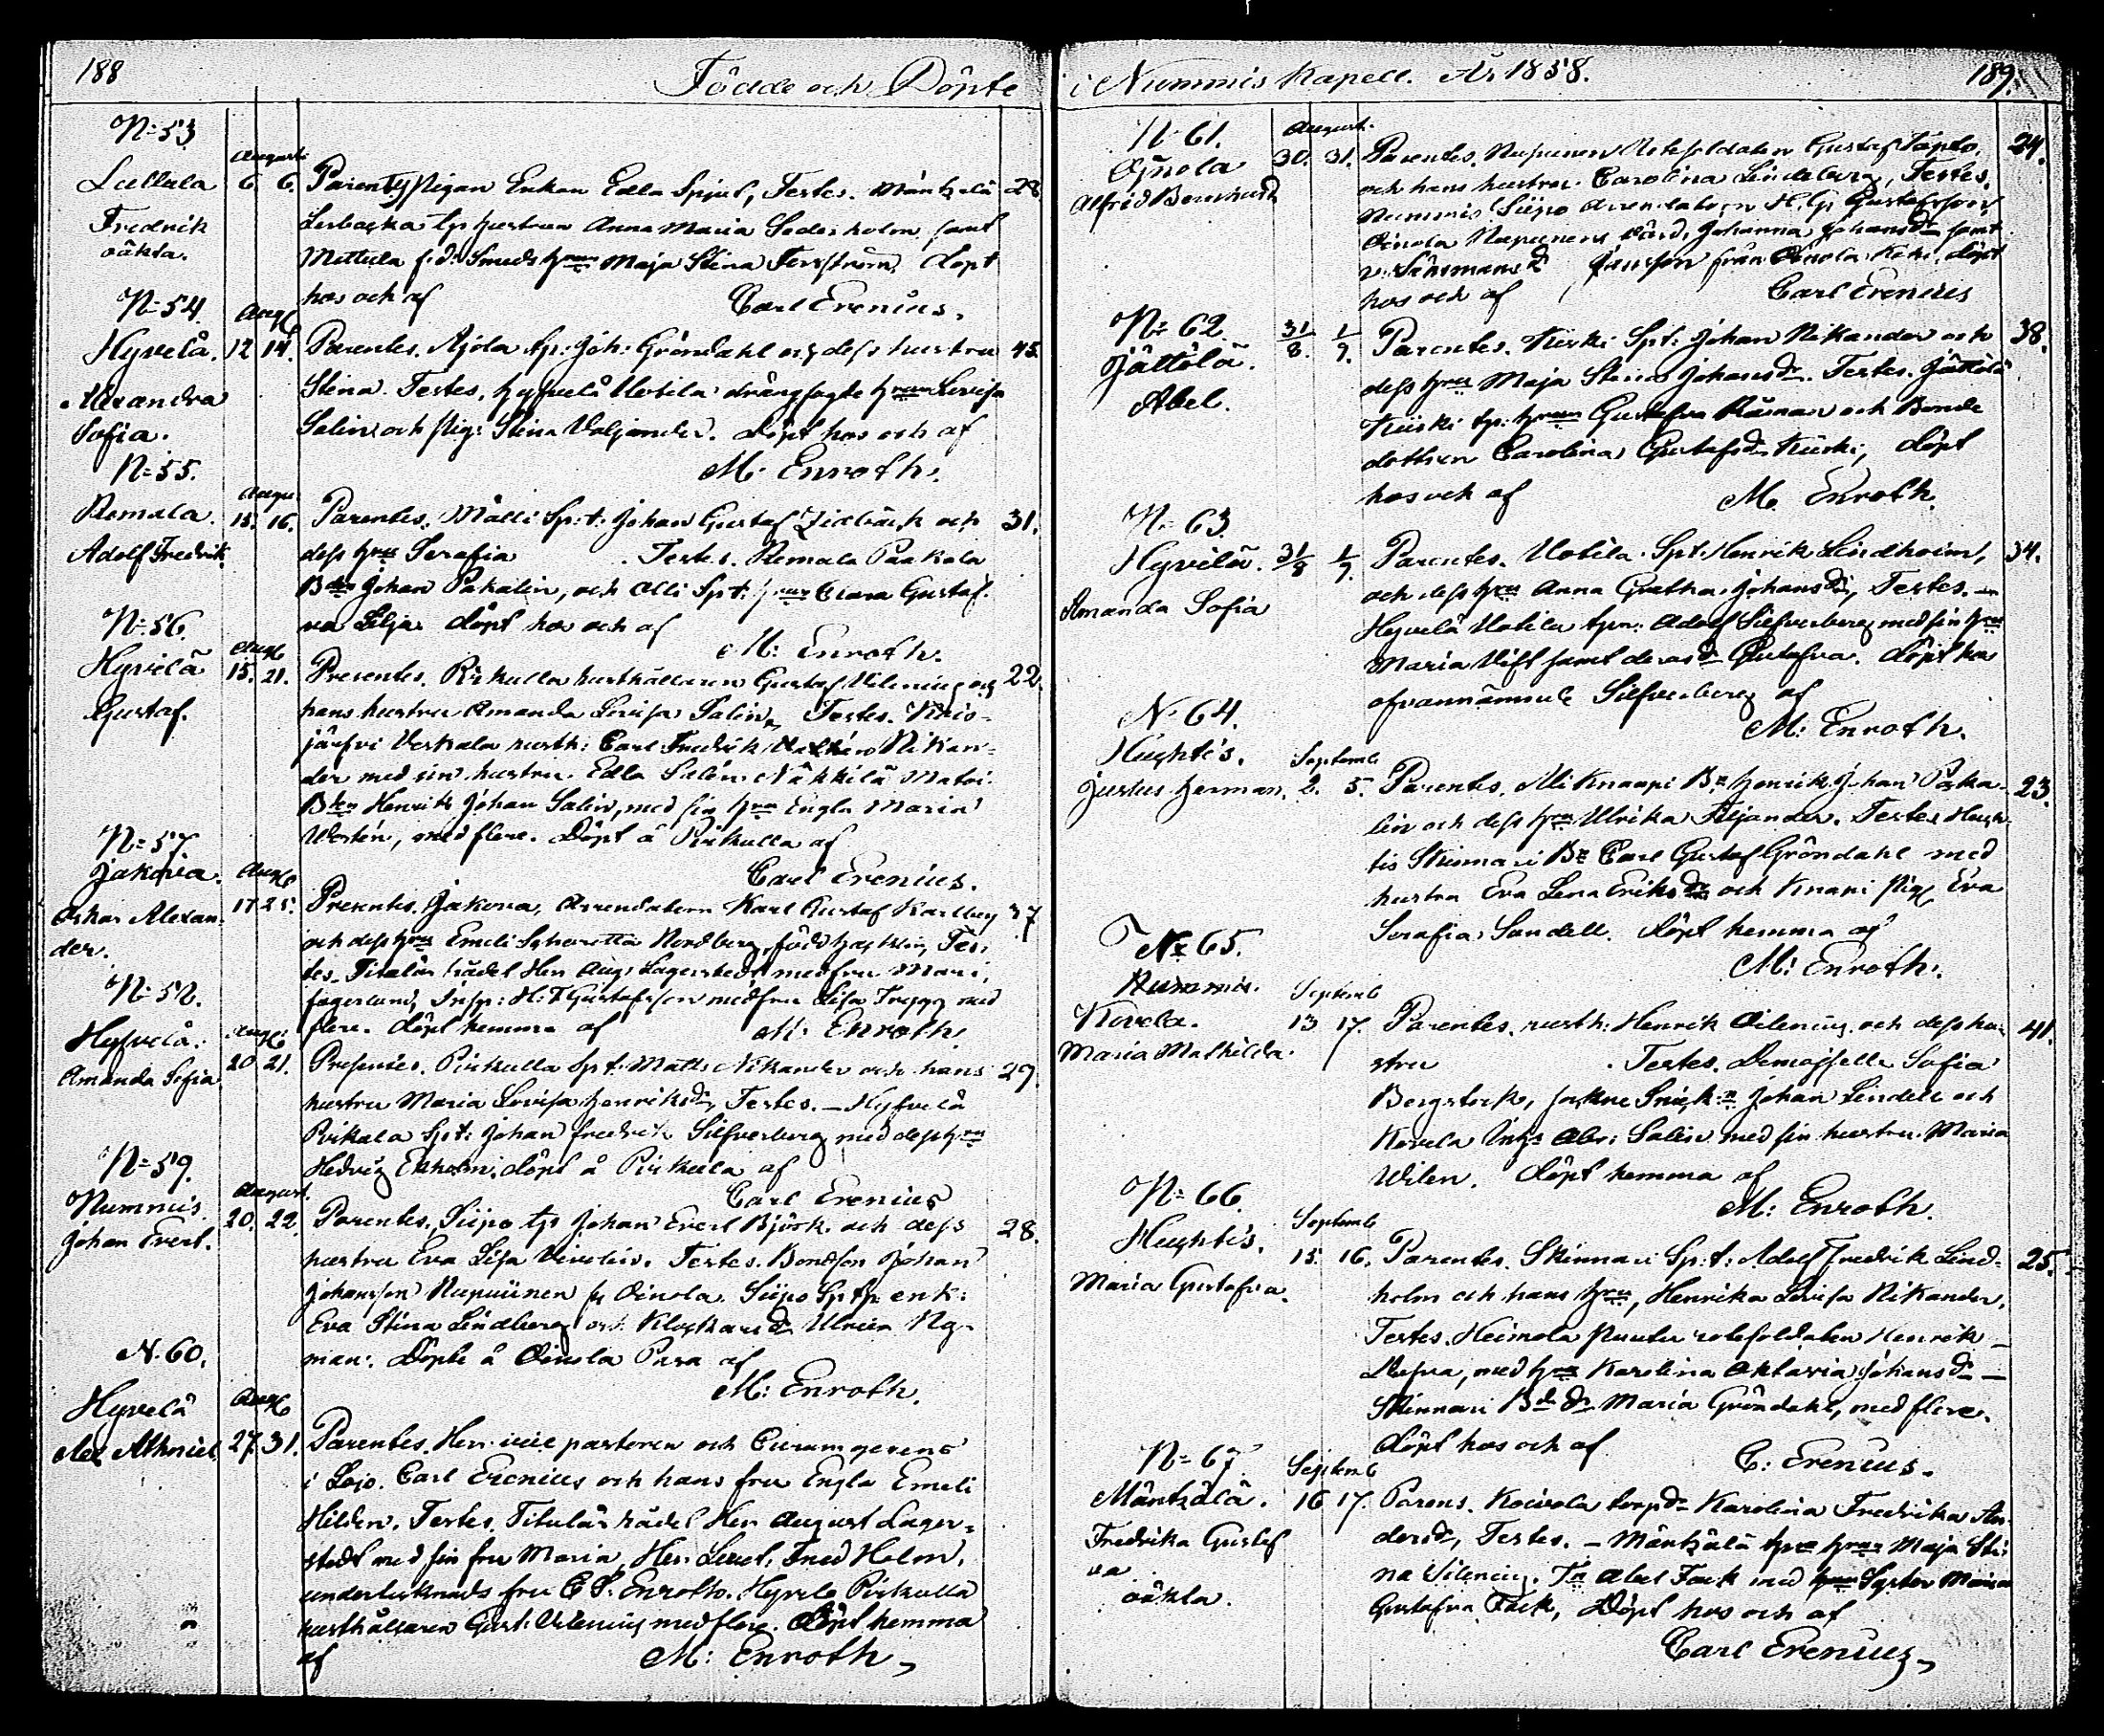 188
Födde och Döpte
N: 53
Lullala
Fredrik
oäkta.
Augusti
6. 6.
Parens, Pigan Enkan Edla Spjut, Testes. Mäntzelä
28.
Lerbacka tp hustrun Anna Maria Sederholm samt
Mettula f.d. Smeds hrun Maja Stina Forsström. döpt
hos och af Carl Erenius.
N: 54.
Hyvelä.
Alexandra
Sofia.
Aug
12 14.
Parentes. Ajola Sp: Joh: Gröndahl och dess hustru
45.
Stina. Testes, Hyvelä Uotila drängfogte hrun Lovisa
Salin och pig: Stina Valjander. Döpt hos och af
M: Enroth.
N: 55.
Remala.
Adolf Fredrik.
Augu.
15. 16.
Parentes. Mälli Sp:t: Johan Gustaf Zidbäck och
31.
dess hru Serafia . Testes. Remala Paakala
Bden Johan Pakalin, och Alli Spt: hrun Clara Gustaf-
va Lilja döpt hos och af
M: Enroth.
N: 56.
Hyvelä
Gustaf.
Aug
15. 21.
Parentes. Pirkulla husthållaren Gustaf Vilenius och
22.
hans hustru Amanda Lovisa Salin, Testes.
järfvi Verkala rusth: Carl Fredrik Nikan-
der med sin hustru. Edla Salin. Näkkilä Matvi
Bden Henrik Johan Salin, med sin hru Engla Maria
Westén, med flere. Döpt å Pirkulla af
Carl Erenius.
N: 57
Jakovia.
Oskar Alexan-
der.
Aug
17 25.
Parentes. Jakova, Arrendatorn Karl Gustaf Karlberg
37
och dess hru Emeli Nordberg, Tes-
tes. Titulär rådet Herr Aug: Lagerstedt med fru Mari
Fagerlund, Insp: H: F. Gustafsson med fru Lisa med
flere. döpt hemma af M: Enroth.
N: 58.
Hyfvelä.
Amanda Sofia
Aug
20 21.
Parentes. Pirkulla Spt: Matts Nikander och hans
29.
hustru Maria Lovisa Henriksdr, Testes. – Hyfvelä
Pirkala Spt: Johan Fredrik Silfverberg med dess hru
Hedvig Ekholm. döpt å Pirkula af
Carl Erenius
N: 59.
Nummis.
Johan Evert.
August.
20. 22.
Parentes. Siipo tp Johan Evert Björk. och dess
28.
hustru Eva Lisa Vinolin. Testes. Bondson Johan
Johansson Nupuinen fr Oinola. Siipo Sptp enk:
Eva Stina Lindberg och Klockars dr Ulrica Ny-
man. Döpte å Oinola Pura af
M: Enroth.
N. 60.
Hyvelä
Axel Athniel
Aug
27. 31.
Parentes. Herr vice pastoren och Curam gerens
i Lojo. Carl Erenius och hans fru Engla Emeli
Hilden. Testes. Titulär rådet Herr August Lager-
stedt med sin fru Maria, Herr Fred Holm.
undertecknads fru C S. Enroth. Hyvelä Pirkulla
rusthållaren Gust: Vilenius med flere. Döpt hemma
af M: Enroth
i Nummis Kapell. År 1858.
189.
N: 61.
Oinola
Alfred Bernhard
Augusti.
30. 31.
Parentes. Nupunen Rotesoldaten Gustaf Täplo.
24.
och hans hustru. Carolina Lindeberg, Testes.
Nummis Siipo Arrendatorn H. Gustafsson
Oinola Nupunens värd. Johanna Johansdr samt
v: Länsmans dr Jansson från Oinola. döpt
hos och af Carl Erenius
N: 62.
Jättölä.
Abel.
31/8. 1/9.
Parentes. Kiiski Spt: Johan Nikander och
38.
dess hru Maja Stina Johansdr. Testes. Jättölä
Kiiski tp: hrun Gustafva Råman och Bonde
dottren Carolina Gustafsdr Kiiski, döpt
hos och af M. Enroth.
N: 63.
Hyvelä.
Amanda Sofia
31/8 1/9.
Parentes. Uotila. Spt: Henrik Lindholm,
34.
och dess hru Anna Gretha Johansdr, Testes. –
Hyvelä Uotila tpr: Adolf Silfverberg med sin hru
Maria Vift samt deras dr Gustafva. döpt hos
ofvannämnde Silfverberg af
M: Enroth.
N: 64.
Huhtis.
Justus Herman.
Septemb
2. 5.
Parentes. Alli Knaapi Bn Henrik Johan Paka-
23.
lin och dess hru Ulrika Filjander. Testes Huh-
tis Skinnari Bn Carl Gustaf Gröndahl med
hustru Eva Lena Eriksdr och Knapi pig Eva
Serafia Sandell. döpt hemma af
M: Enroth.
N: 65.
Nummis.
Kovela.
Maria Mathilda.
Septemb
13 17.
Parentes. rusth: Henrik Vilenius. och dess hu-
41.
stru . Testes. Demoiselle Sofia
Bergstock, Johan Lindell och
Kovela Abr: Salin med sin hustru. Maria
Wilen. döpt hemma af
M: Enroth.
N: 66.
Huhtis.
Maria Gustafva.
Septemb
15. 16.
Parentes. Skinnari Sp:t: Adolf Fredrik Lind-
25.
holm och hans hru, Henrika Lovisa Nikander,
Testes. Heimola rotesoldaten Henrik
, med hru Karolina Oktavia Johansdr –
Skinnari Bd dr Maria Gröndahl, med flere.
döpt hos och af C: Erenius.
N: 67
Mäntzälä.
Fredrika Gustaf
va
oäkta.
Septemb
16 17.
Parens. Koivola torpdr Karolina Fredrika An-
dersdr, Testes. – Mäntzälä hrun Maja Sti-
na Vilenius. Abel Fack med Syster Maria
Gustafva Fack, Döpt hos och af
Carl Erenius